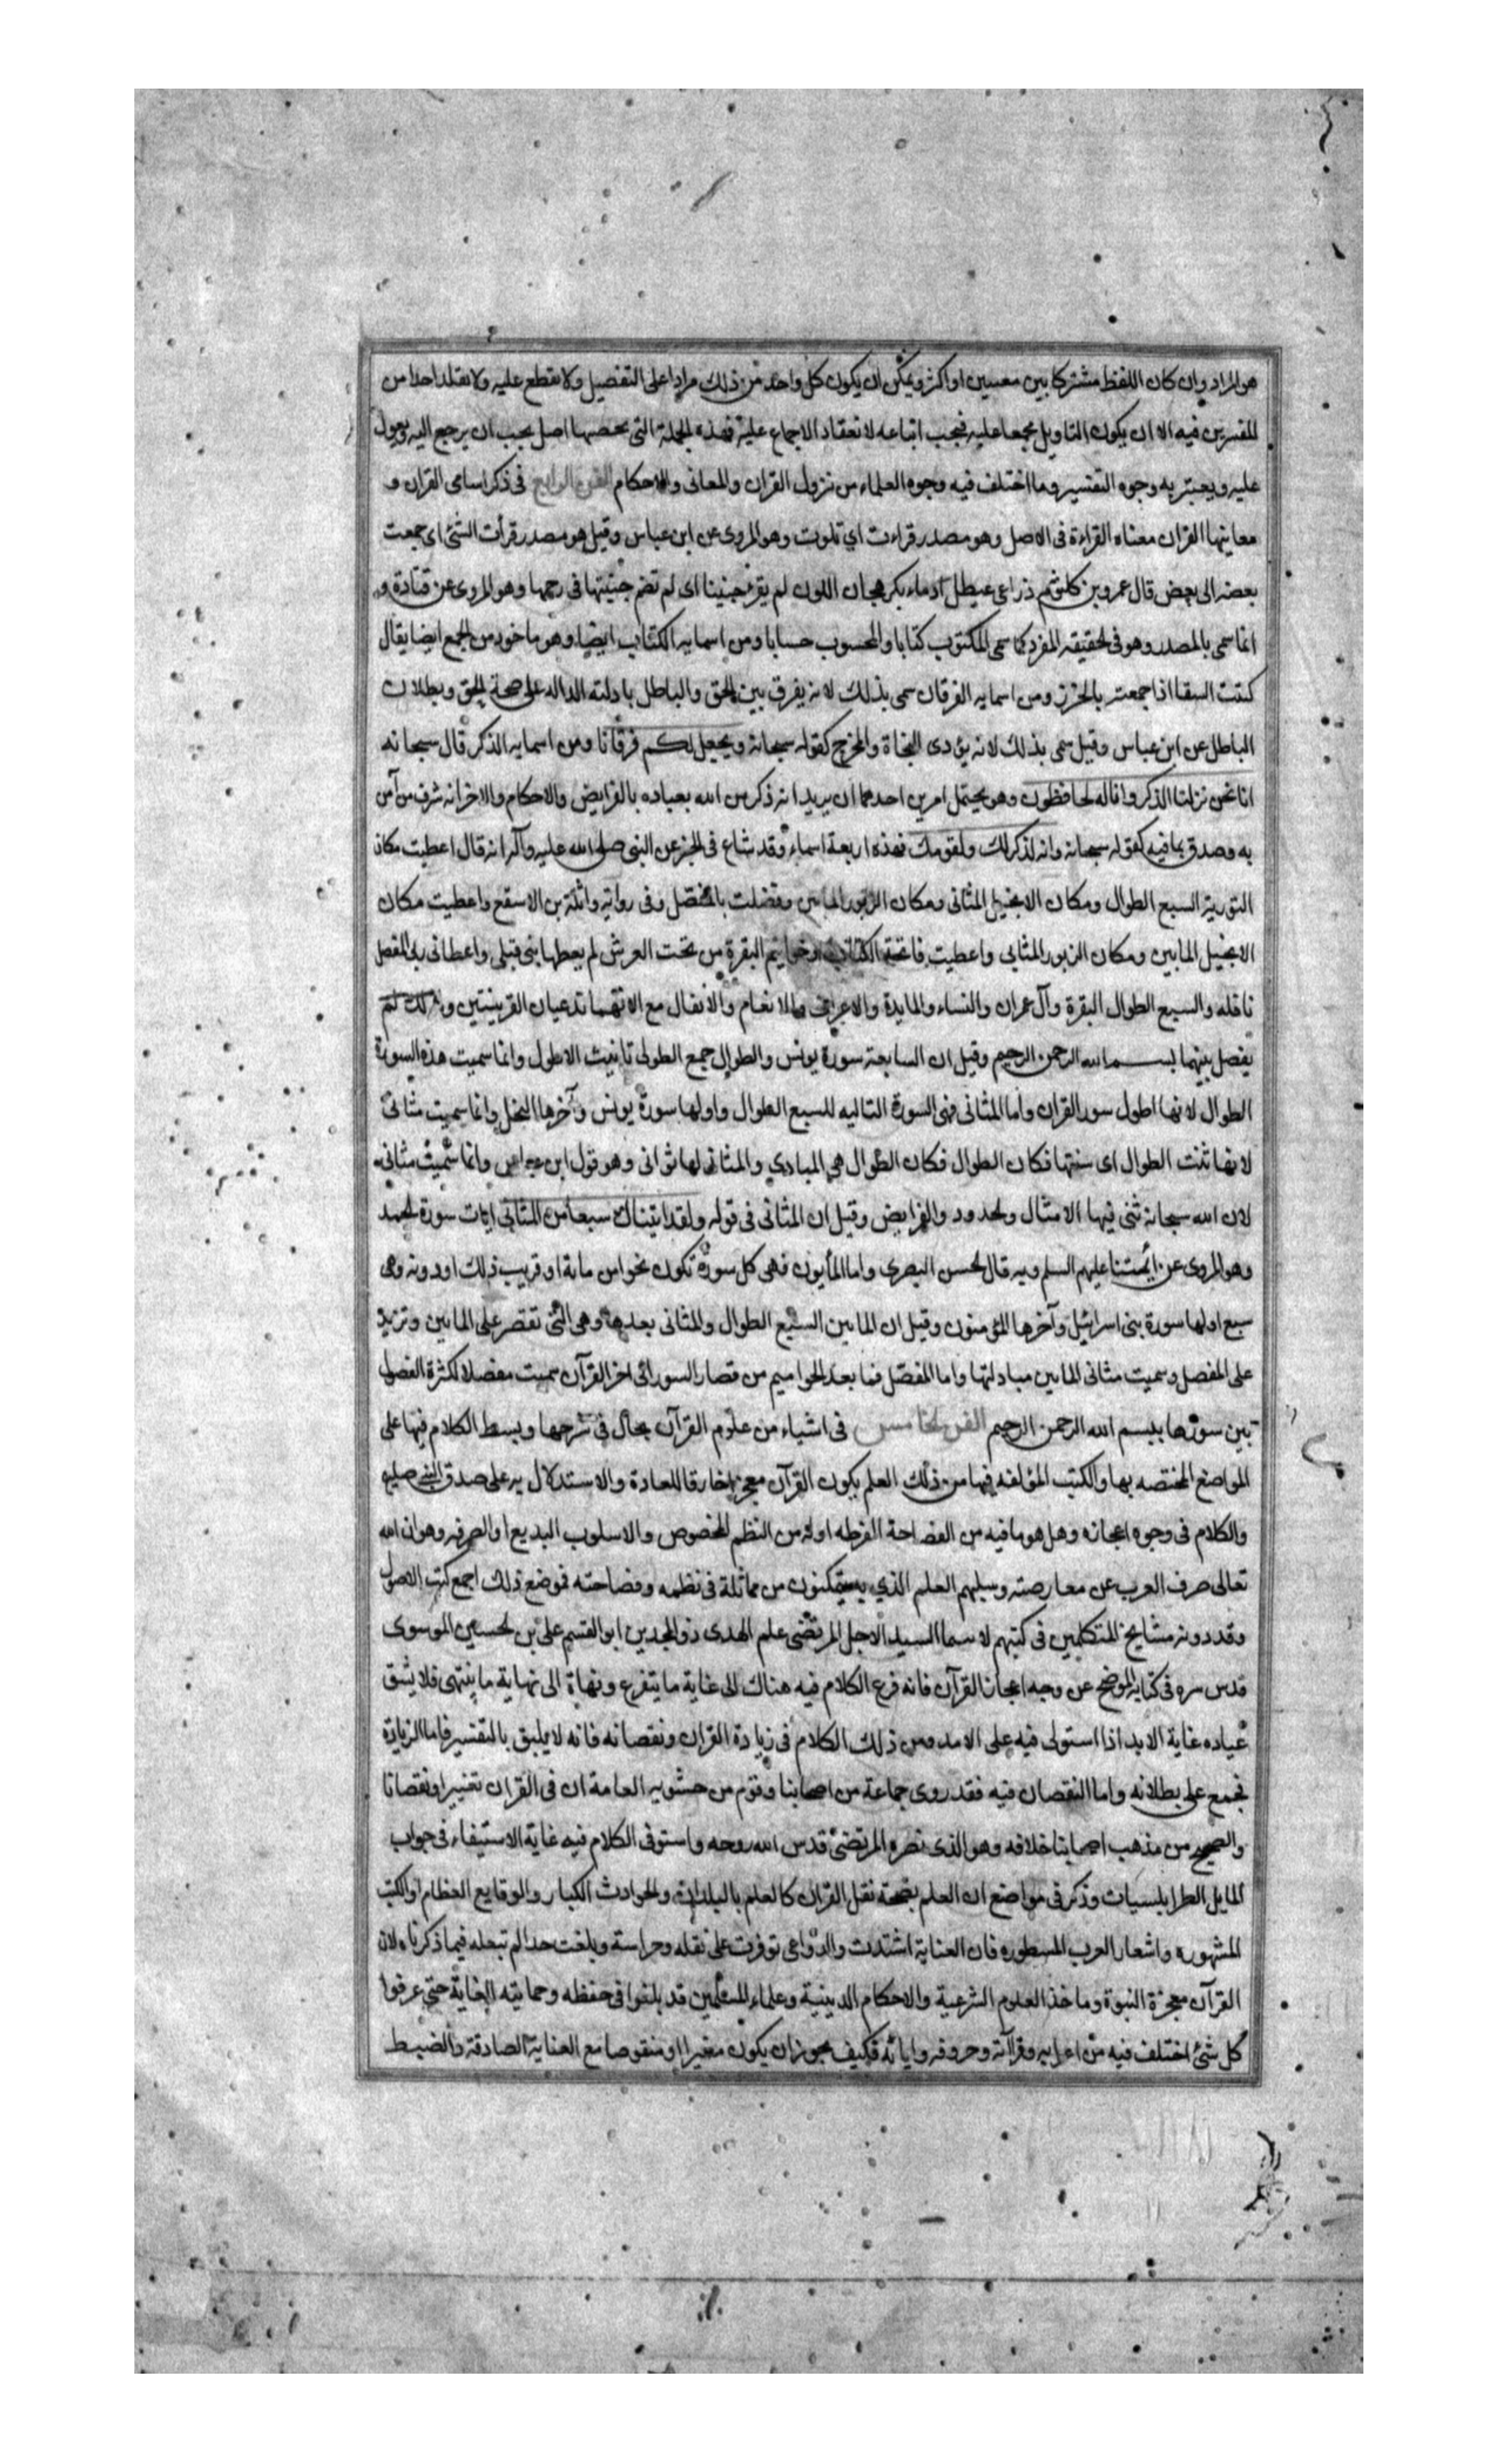 هو المراد وان كان اللفظ مشتركا بين معنيين او اكثر ويمكن ان يكون كل واحد من ذلك مرادا على التفصيل ولا نقطع عليه ولا نقلد احدا من
المفسرين فيه الا ان يكون التاويل مجمعا عليه فيجب اتباعه لانعقاد الاجماع عليه فهذه الجملة التي اصل يجب ان يرجع اليه ويعول
عليه ويعتبر به وجوه التفسير وما اختلف فيه وجوه العلماء من نزول القران والمعاني والاحكام الفن الرابع في ذكر اسامي القران و
معانيها القران معناه القراءة في الاصل وهو مصدر قراءت اي تلوت وهو المروي عن ابن عباس وقيل هو مصدر قرأت الشئ اي جمعت
بعضه الى بعض قال عمرو بن كلثوم ذراعي عيطل ادماء بكر هجان اللون لم يقرء جنينا اي لم تضم جنينها في رحمها وهو المروي عن قتادة و
انما سمي بالمصدر وهو في الحقيقه المفرد كما سمي المكتوب كتابا والمحسوب حسابا ومن اسمايه الكتاب ايضا وهو ماخوذ من الجمع ايضا يقال
كتبت السقا اذا جمعته بالخرز ومن اسمايه الفرقان سمي بذلك لانه يفرق بين الحق والباطل بادلته الداله على صحة الحق وبطلان
الباطل عن ابن عباس وقيل سمي بذلك لانه يؤدى النجاة والمخرج كقوله سبحانه ويجعل لكم فرقانا ومن اسمايه الذكر قال سبحانه
انا نحن نزلنا الذكر وانا له لحافظون وهو يحتمل امرين احدهما ان يريد انه ذكر من الله بعباده بالفرايض والاحكام والاخر انه شرف من آمن
به وصدق بما فيه كقوله سبحانه وانه لذكر لك ولقومك فهذه اربعة اسماء وقد شاع في الخبر عن النبي صلى الله عليه وآله انه قال اعطيت مكان
التورية السبع الطوال ومكان الانجيل المثاني ومكان الزبور المايين وفضلت بالمفصل وفي رواية واثلة بن الاسقع واعطيت مكان
الانجيل المايين ومكان الزبور المثاني واعطيت فاتحة الكتاب وخواتيم البقرة من تحت العرش لم يعطها نبي قبلي واعطاني ربي المفصل
نافله والسبع الطوال البقرة وآل عمران والنساء والمايدة والاعراف والانعام والانفال مع الانهما تدعيان القرينتين ولذلك لم
يفصل بينهما بسم الله الرحمن الرحيم وقيل ان السابعة سورة يونس والطوال جمع الطولى تانيث الاطول وانما سميت هذه السورة
الطوال لانها اطول سور القران واما المثاني فهي السورة التاليه للسبع الطوال واولها سورة يونس وآخرها النحل وانما سميت مثاني
لانها ثنت الطوال اى سنتها فكان الطوال فكان الطوال هي المبادي والمثاني لها ثواني وهو قول ابن عباس وانما سميت مثاني
لان الله سبحانه ثنى فيها الامثال والحدود والفرايض وقيل ان المثاني في قوله ولقد اتيناك سبعا من المثاني ايات سورة الحمد
وهو المروي عن ائمتنا عليهم السلم وبه قال الحسن البصري واما المأيون فهي كل سورة تكون نحوا من ماية او قريب ذلك او دونه وهي
سبع اولها سورة بني اسرائيل وآخرها المؤمنون وقيل ان المايين السبع الطوال والمثاني بعدها وهي التي تقصر على المايين وتزيد
على المفصل وسميت مثاني المايين مبادلتها واما المفصل فما بعد الحواميم من قصار السور الى اخر القرآن سميت مفصلا لكثرة الفصول
بين سورها ببسم الله الرحمن الرحيم الفن الخامس في اشياء من علوم القرآن يحال في شرحها وبسط الكلام فيها على
المواضع المختصه بها والكتب المؤلفه فيها من ذلك العلم بكون القرآن معجزا خارقا للعادة والاستدلال به على صدق النبي
والكلام في وجوه اعجازه وهل هو ما فيه من الفصاحة المفرطه او له من النظم المخصوص والاسلوب البديع او الصرفه وهو ان الله
تعالى صرف العرب عن معارضته وسلبهم العلم الذي به يتمكنون من مماثلة في نظمه وفصاحته فموضع ذلك اجمع كتب الاصول
وقد دونه مشايخ المتكلمين في كتبهم لا سيما السيد الاجل المرتضى علم الهدى ذو المجدين ابو القسم على بن الحسين الموسوى
قدس سره في كتابه الموضح عن وجه اعجاز القرآن فانه فرع الكلام فيه هناك الى غاية ما يتفرع ونهاة الى نهاية ما ينتهى فلا يشق
غباره غاية الابد اذا استولى فيه على الامد ومن ذلك الكلام في زيادة القران ونقصانه فانه لا يليق بالتفسير فاما الزيادة
فجمع على بطلانه واما النقصان فيه فقد روى جماعة من اصحابنا وقوم من حشويه العامة ان في القران تغييرا ونقصانا
والصحيح من مذهب اصحابنا خلافه وهو الذى نصره المرتضى قدس الله روحه واستوفى الكلام فيه غاية الاستيفاء في جواب
المايل الطرابلسيات وذكر في مواضع ان العلم بصحة نقل القران كالعلم بالبلدان والحوادث الكبار والوقايع العظام والكتب
المشهوره واشعار العرب المسطوره فان العناية اشتدت والدواعي توفرت على نقله وحراسة وبلغت حدا لم تبعله فيما ذكرناه لان
القرآن معجزة النبوة وماخذ العلوم الشرعية والاحكام الدينية وعلماء المسلمين قد بلغوا في حفظه وحمايته الغاية حتى عرفوا
كل شئ اختلف فيه من اعرابه وقرآته وحروفه واياته فكيف يجوز ان يكون مغيرا او منقوصا مع العناية الصادقة والضبط